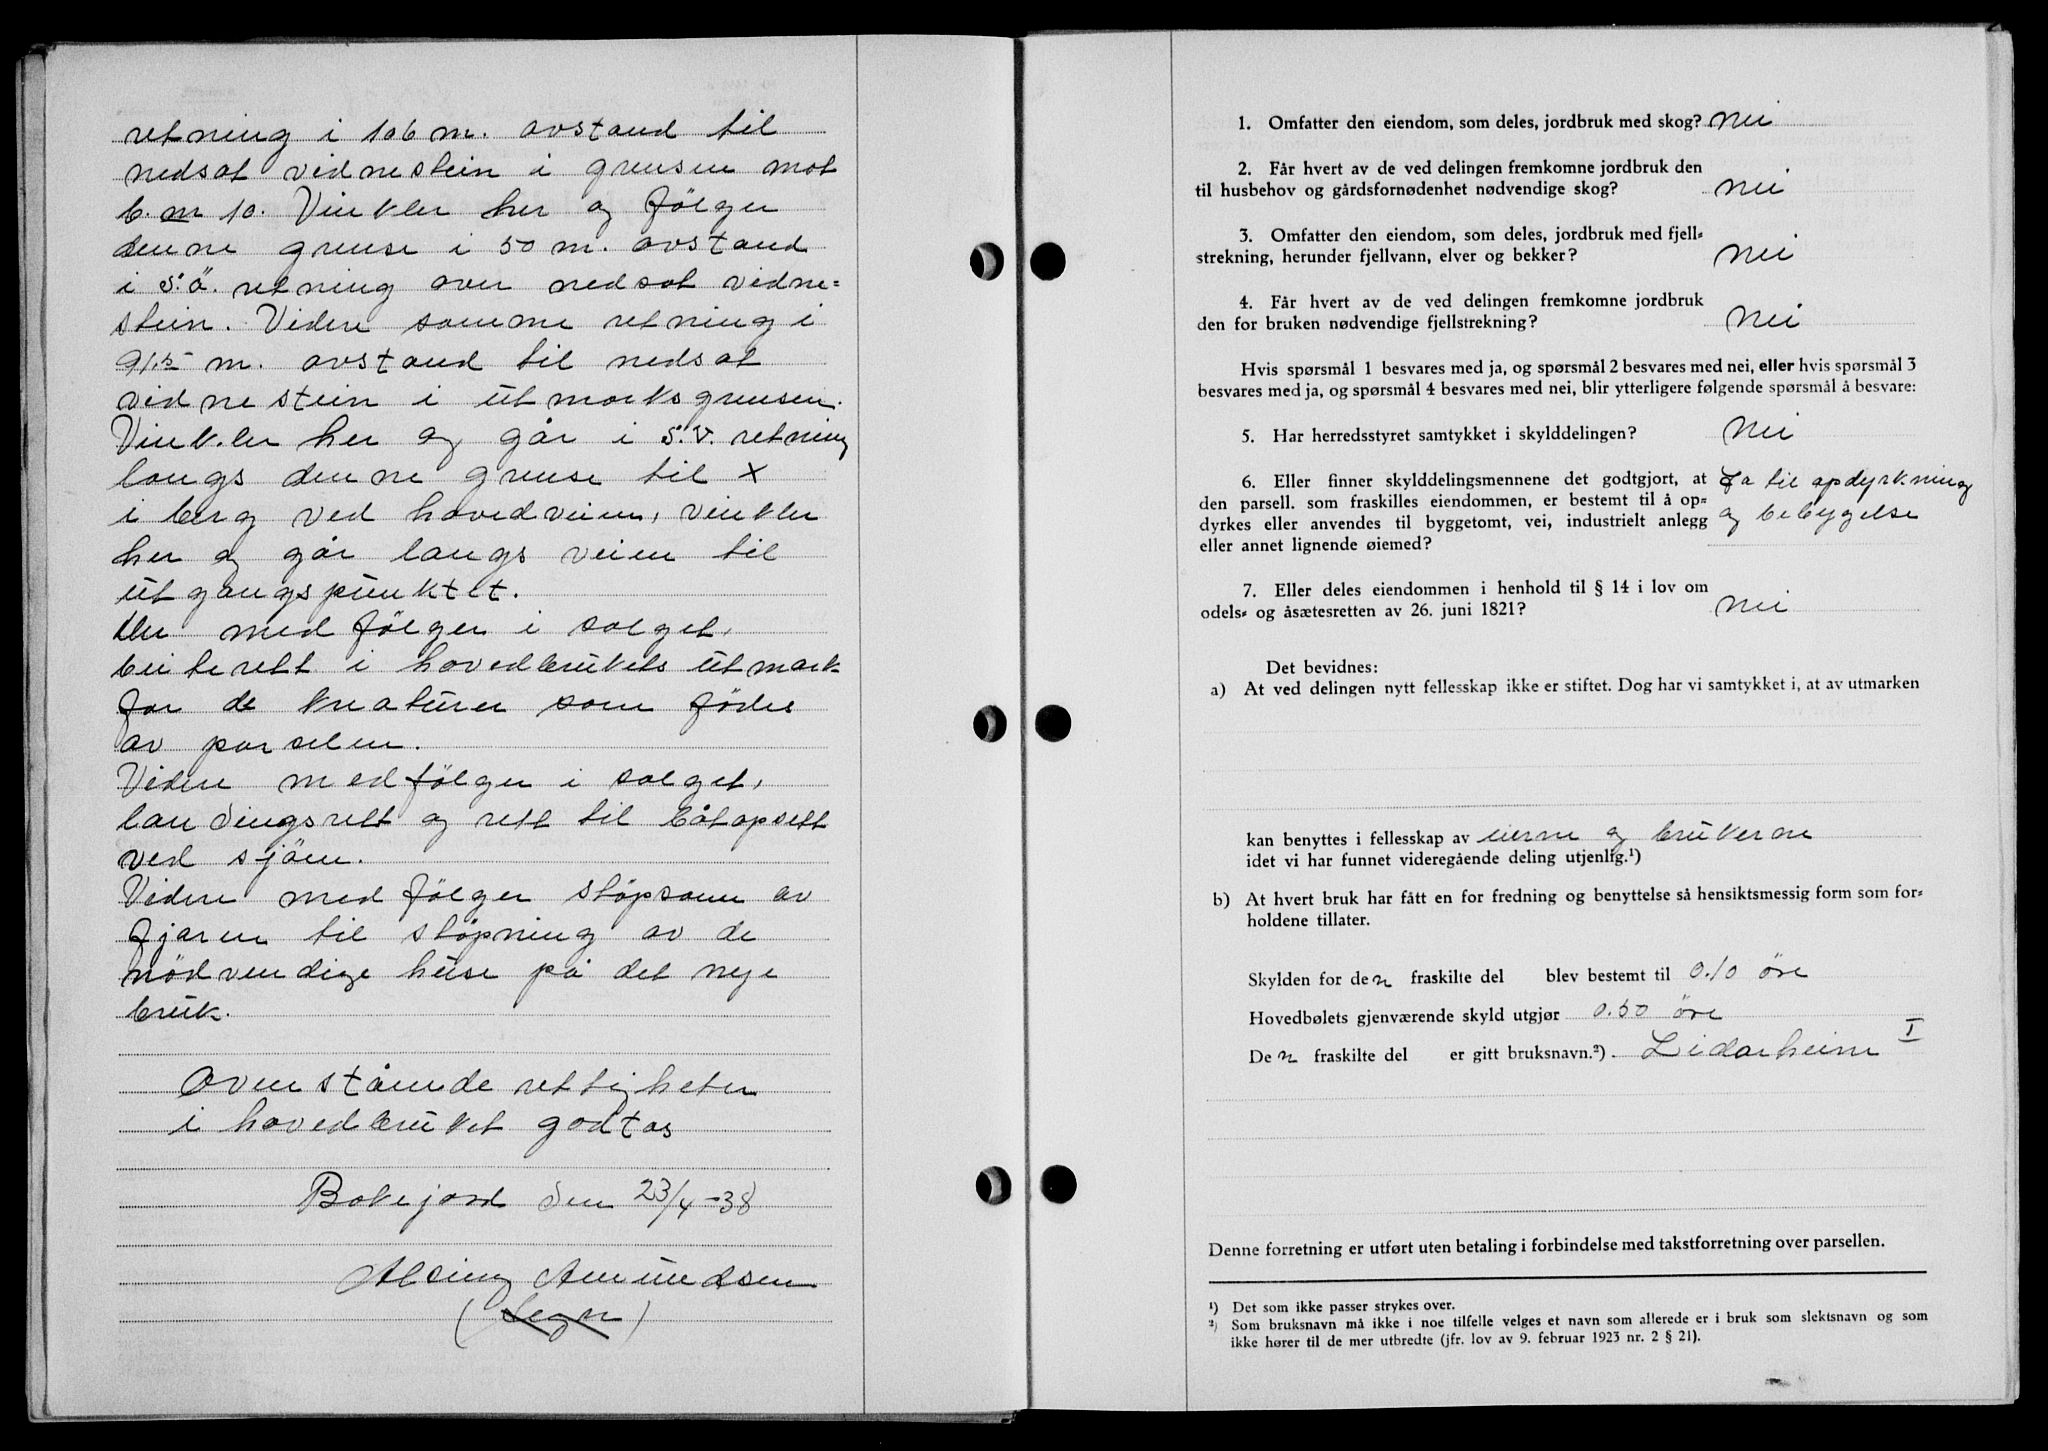 retning i 106 m. avstand til
nedsat vidnestein i grensen mot
b. m 10. Vinkler her og følger
denne grense i 50 m. avstand
i s.ö. retning over nedsat vidne=
stein. Videre samme retning i
91.5 m. avstand til nedsat
vidnestein i utmarksgrensen.
Vinkler her og går i s.v. retning
langs denne grense til x
i berg ved hovedveien, vinkler
her og går langs veien til
utgangspunktet.
Der medfölger i salget,
beiterett i hovedbrukets utmark
for de kreaturer som fødes
av parselen.
Videre medfölger i salget,
landingsrett og rett til båtopsett
ved sjöen.
Videre medfölger stöpsann av
fjæren til stöpning av de
nödvendige huse på det nye
bruk.
Ovenstående rettigheter
i hovedbruket godtas
Bakejord den 23/4-38
Alsing Amundsen
(Segn)
1. Omfatter den eiendom, som deles, jordbruk med skog? nei
2. Får hvert av de ved delingen fremkomne jordbruk den
til husbehov og gårdsfornødenhet nødvendige skog? nei
3. Omfatter den eiendom, som deles, jordbruk med fjell=
strekning, herunder fjellvann, elver og bekker? nei
4. Får hvert av de ved delingen fremkomne jordbruk
den for bruken nødvendige fjellstrekning? nei
Hvis spørsmål 1 besvares med ja, og spørsmål 2 besvares med nei, eller hvis spørsmål 3
besvares med ja, og spørsmål 4 besvares med nei, blir ytterligere følgende spørsmål å besvare:
5. Har herredsstyret samtykket i skylddelingen? nei
6. Eller finner skylddelingsmennene det godtgjort, at
den parsell. som fraskilles eiendommen, er bestemt til å op=
dyrkes eller anvendes til byggetomt, vei, industrielt anlegg
eller annet lignende øiemed?
Ja til opdyrkning
og bebygelse
7. Eller deles eiendommen i henhold til § 14 i lov om
odels= og åsætesretten av 26. juni 1821? nei
Det bevidnes:
a) At ved delingen nytt fellesskap ikke er stiftet. Dog har vi samtykket i, at av utmarken
kan benyttes i fellesskap av eierne og brukerne
idet vi har funnet videregående deling utjenlig.¹)
b) At hvert bruk har fått en for fredning og benyttelse så hensiktsmessig form som for=
holdene tillater.
Skylden for den fraskilte del blev bestemt til 0.10 öre
Hovedbølets gjenværende skyld utgjør 0.50 öre
Den fraskilte del er gitt bruksnavn.²) Lidarheim I
Denne forretning er utført uten betaling i forbindelse med takstforretning over parsellen.
¹) Det som ikke passer strykes over.
²) Som bruksnavn må ikke i noe tilfelle velges et navn som allerede er i bruk som slektsnavn og som
ikke hører til de mer utbredte (jfr. lov av 9. februar 1923 nr. 2 § 21).